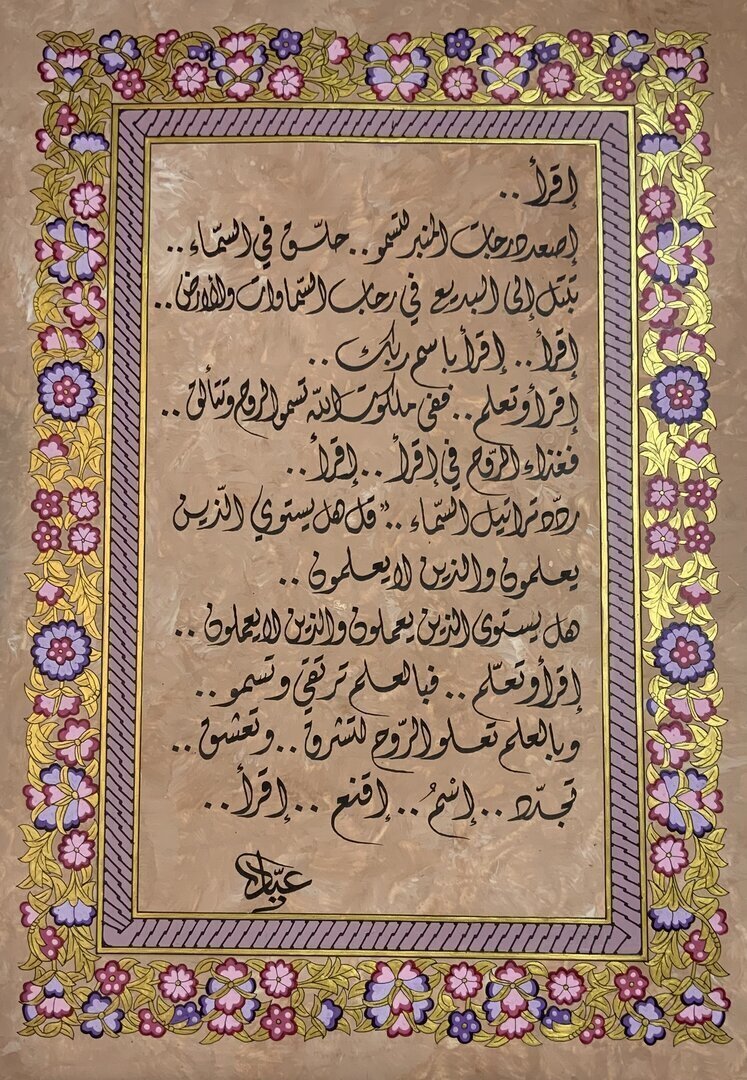 إقرأ ..
إصعد درجات المنبر لتسمو .. حلّق في السّماء ..
تبتل إلى البديع في رحاب السّماوات والأرض ..
إقرأ .. إقرأ باسم ربك ..
إقرأ وتعلم .. ففي ملكوت الله تسمو الروح وتتألق ..
فغذاء الرّوح في إقرأ .. إقرأ ..
ردّد تراتيل السّماء .. " قل هل يستوي الذّين
يعلمون والذين لا يعلمون ..
هل يستوي الذين يعملون والذين لا يعملون ..
إقرأ وتعلّم .. فبالعلم ترتقي وتسمو ..
وبالعلم تعلو الرّوح لتشرق .. وتعشق ..
تجدّد .. إسْمُ .. إقنع .. إقرأ ..
عيّاد